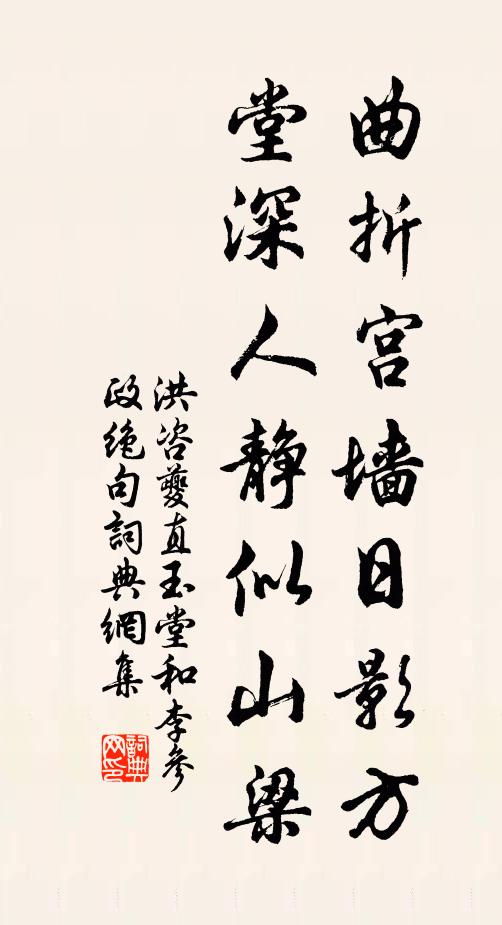 曲折宫墙日影方
堂深人静似山梁
洪咨夔直玉堂和李参
政绝句詞典網集
詞典网印